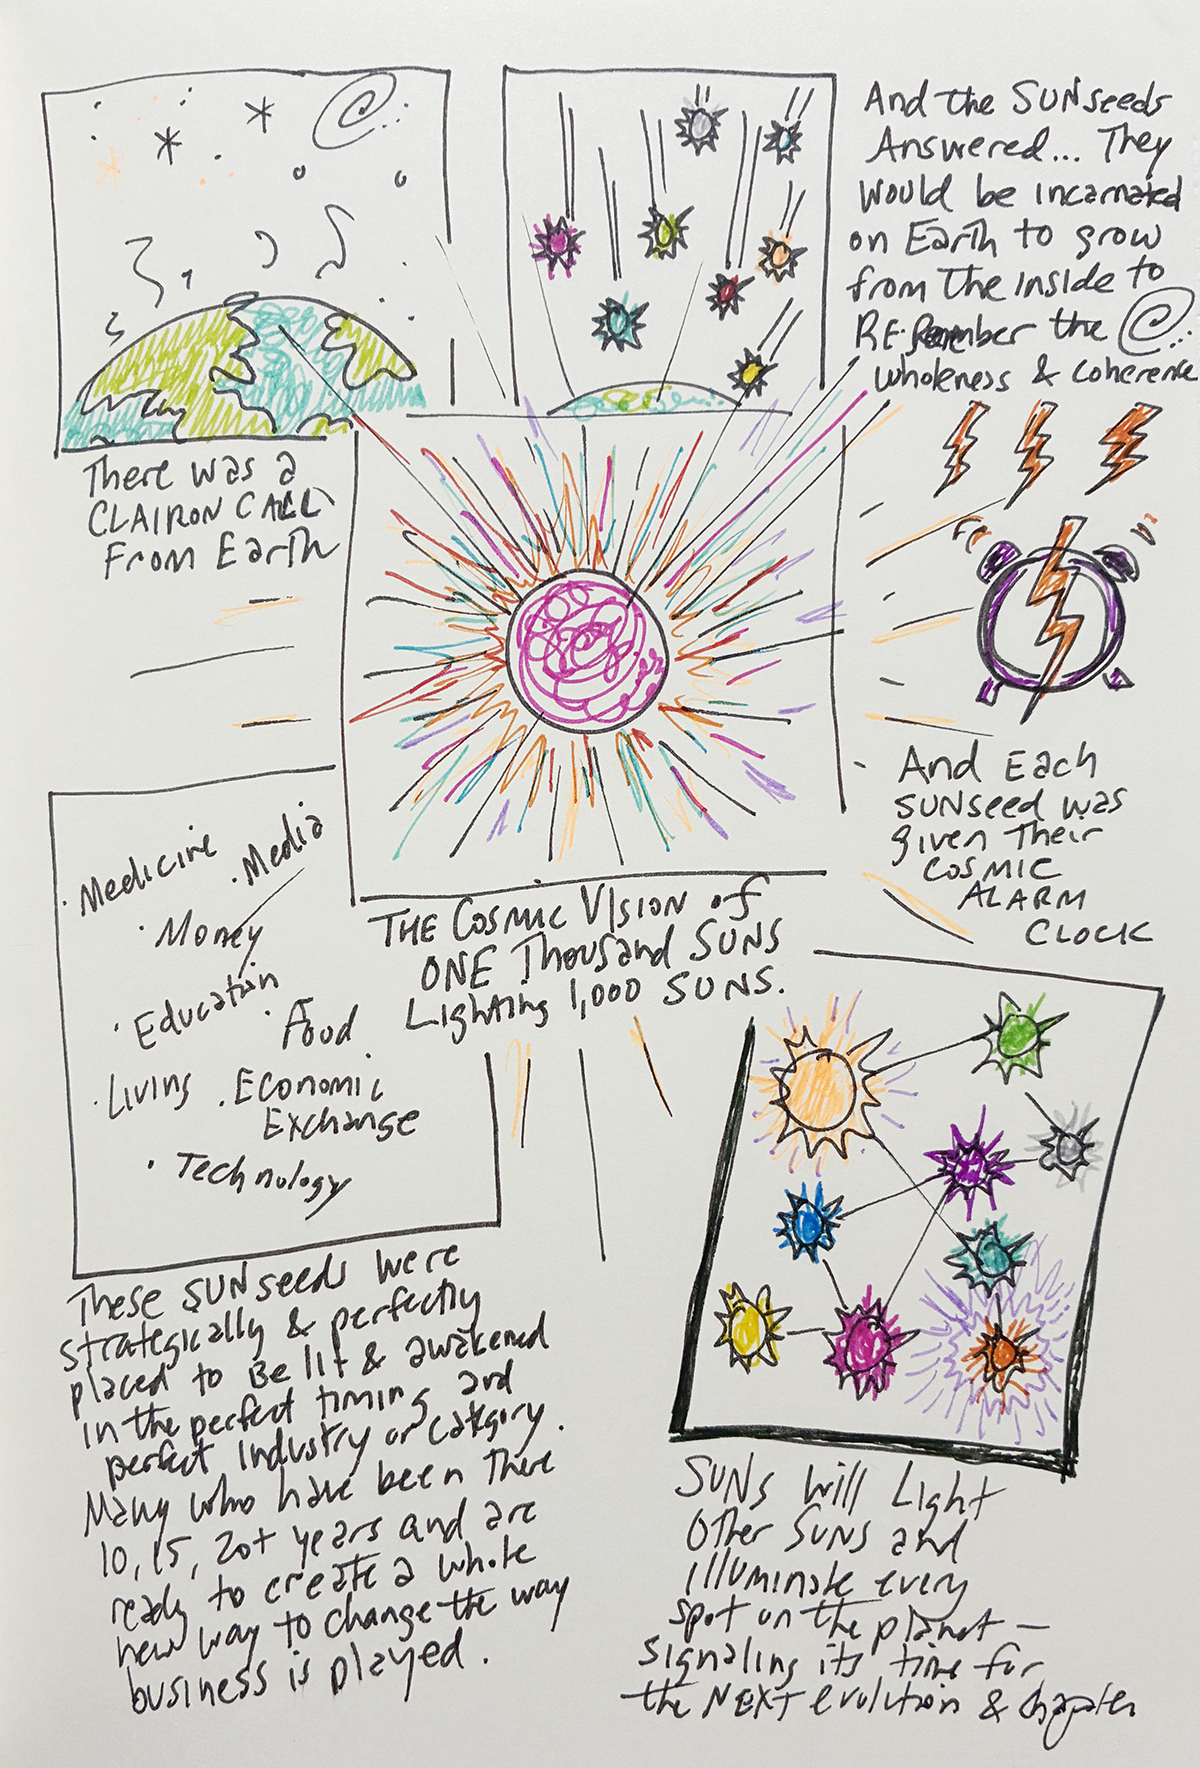 There was a
CLAIRON CALL
From Earth
And the SUNseeds
Answered... They
would be incarnated
on Earth to grow
from The Inside to
RE. member the
wholeness & coherence
And Each
SUNseed was
given Their
COSMIC
ALARM
CLOCK
THE COSMIC VISION of
ONE Thousand SUNS
Lighting 1,000 SUNS.
· Medicine
· Media
· Money
· Education
· Food
· Living
· Economic
Exchange
· Technology
These SUNseeds were
strategically & perfectly
placed to Be lit & awakened
in the perfect timing and
perfect Industry or Category.
Many who have been There
10, 15, 20+ years and are
ready to create a whole
new way to change the way
business is played.
SUNs will Light
Other SUNs and
illuminate every
spot on the planet —
signaling its time for
the NEXT evolution & chapter